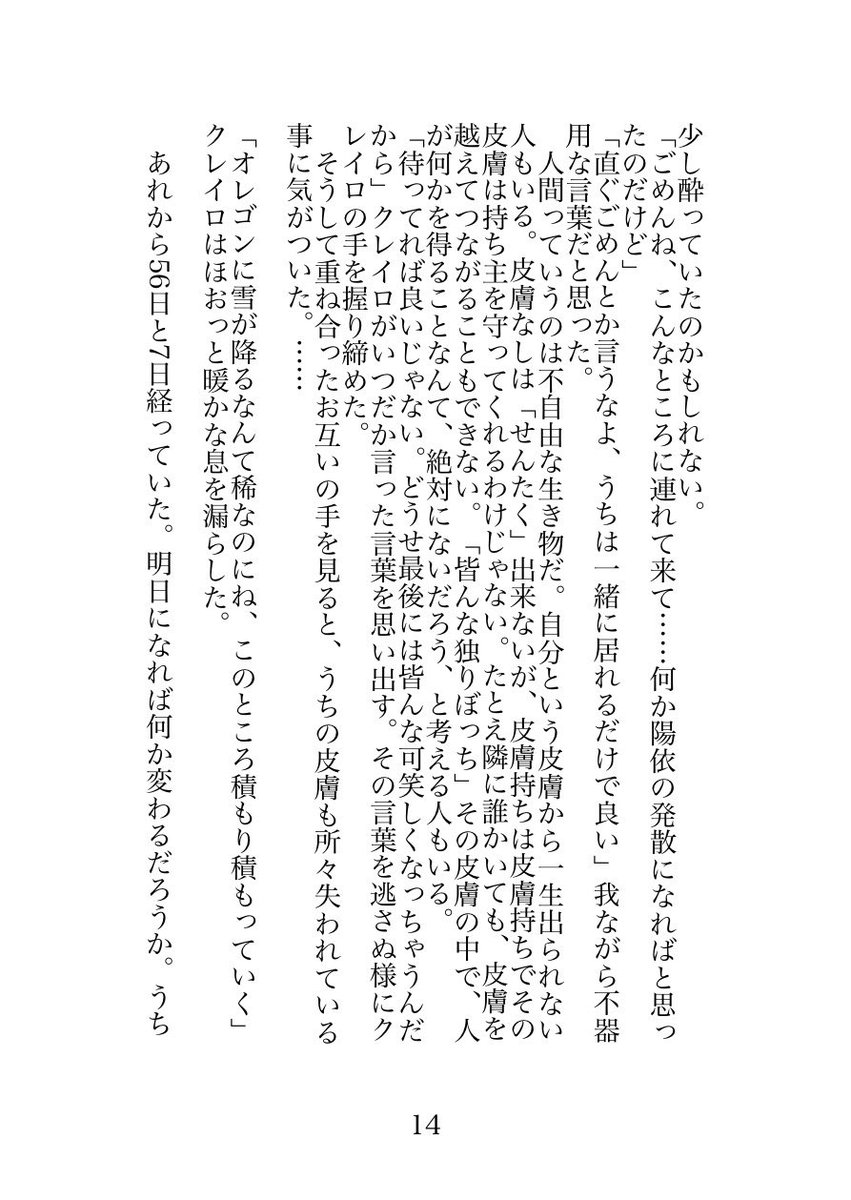 少し酔っていたのかもしれない。
「ごめんね、こんなところに連れて来て……何か陽依の発散になればと思っ
たのだけど」
「直ぐごめんとか言うなよ、うちは一緒に居れるだけで良い」我ながら不器
用な言葉だと思った。
人間っていうのは不自由な生き物だ。自分という皮膚から一生出られない
人もいる。皮膚なしは「せんたく」出来ないが、皮膚持ちは皮膚持ちでその
皮膚は持ち主を守ってくれるわけじゃない。たとえ隣に誰かいても、皮膚を
越えてつながることもできない。「皆んな独りぼっち」その皮膚の中で、人
が何かを得ることなんて、絶対にないだろう、と考える人もいる。
「待ってれば良いじゃない。どうせ最後には皆んな可笑しくなっちゃうんだ
から」クレイロがいつだか言った言葉を思い出す。その言葉を逃さぬ様にク
レイロの手を握り締めた。
そうして重ね合ったお互いの手を見ると、うちの皮膚も所々失われている
事に気がついた。……
「オレゴンに雪が降るなんて稀なのにね、このところ積もり積もっていく」
クレイロはほおっと暖かな息を漏らした。
あれから56日と7日経っていた。明日になれば何か変わるだろうか。うち
14